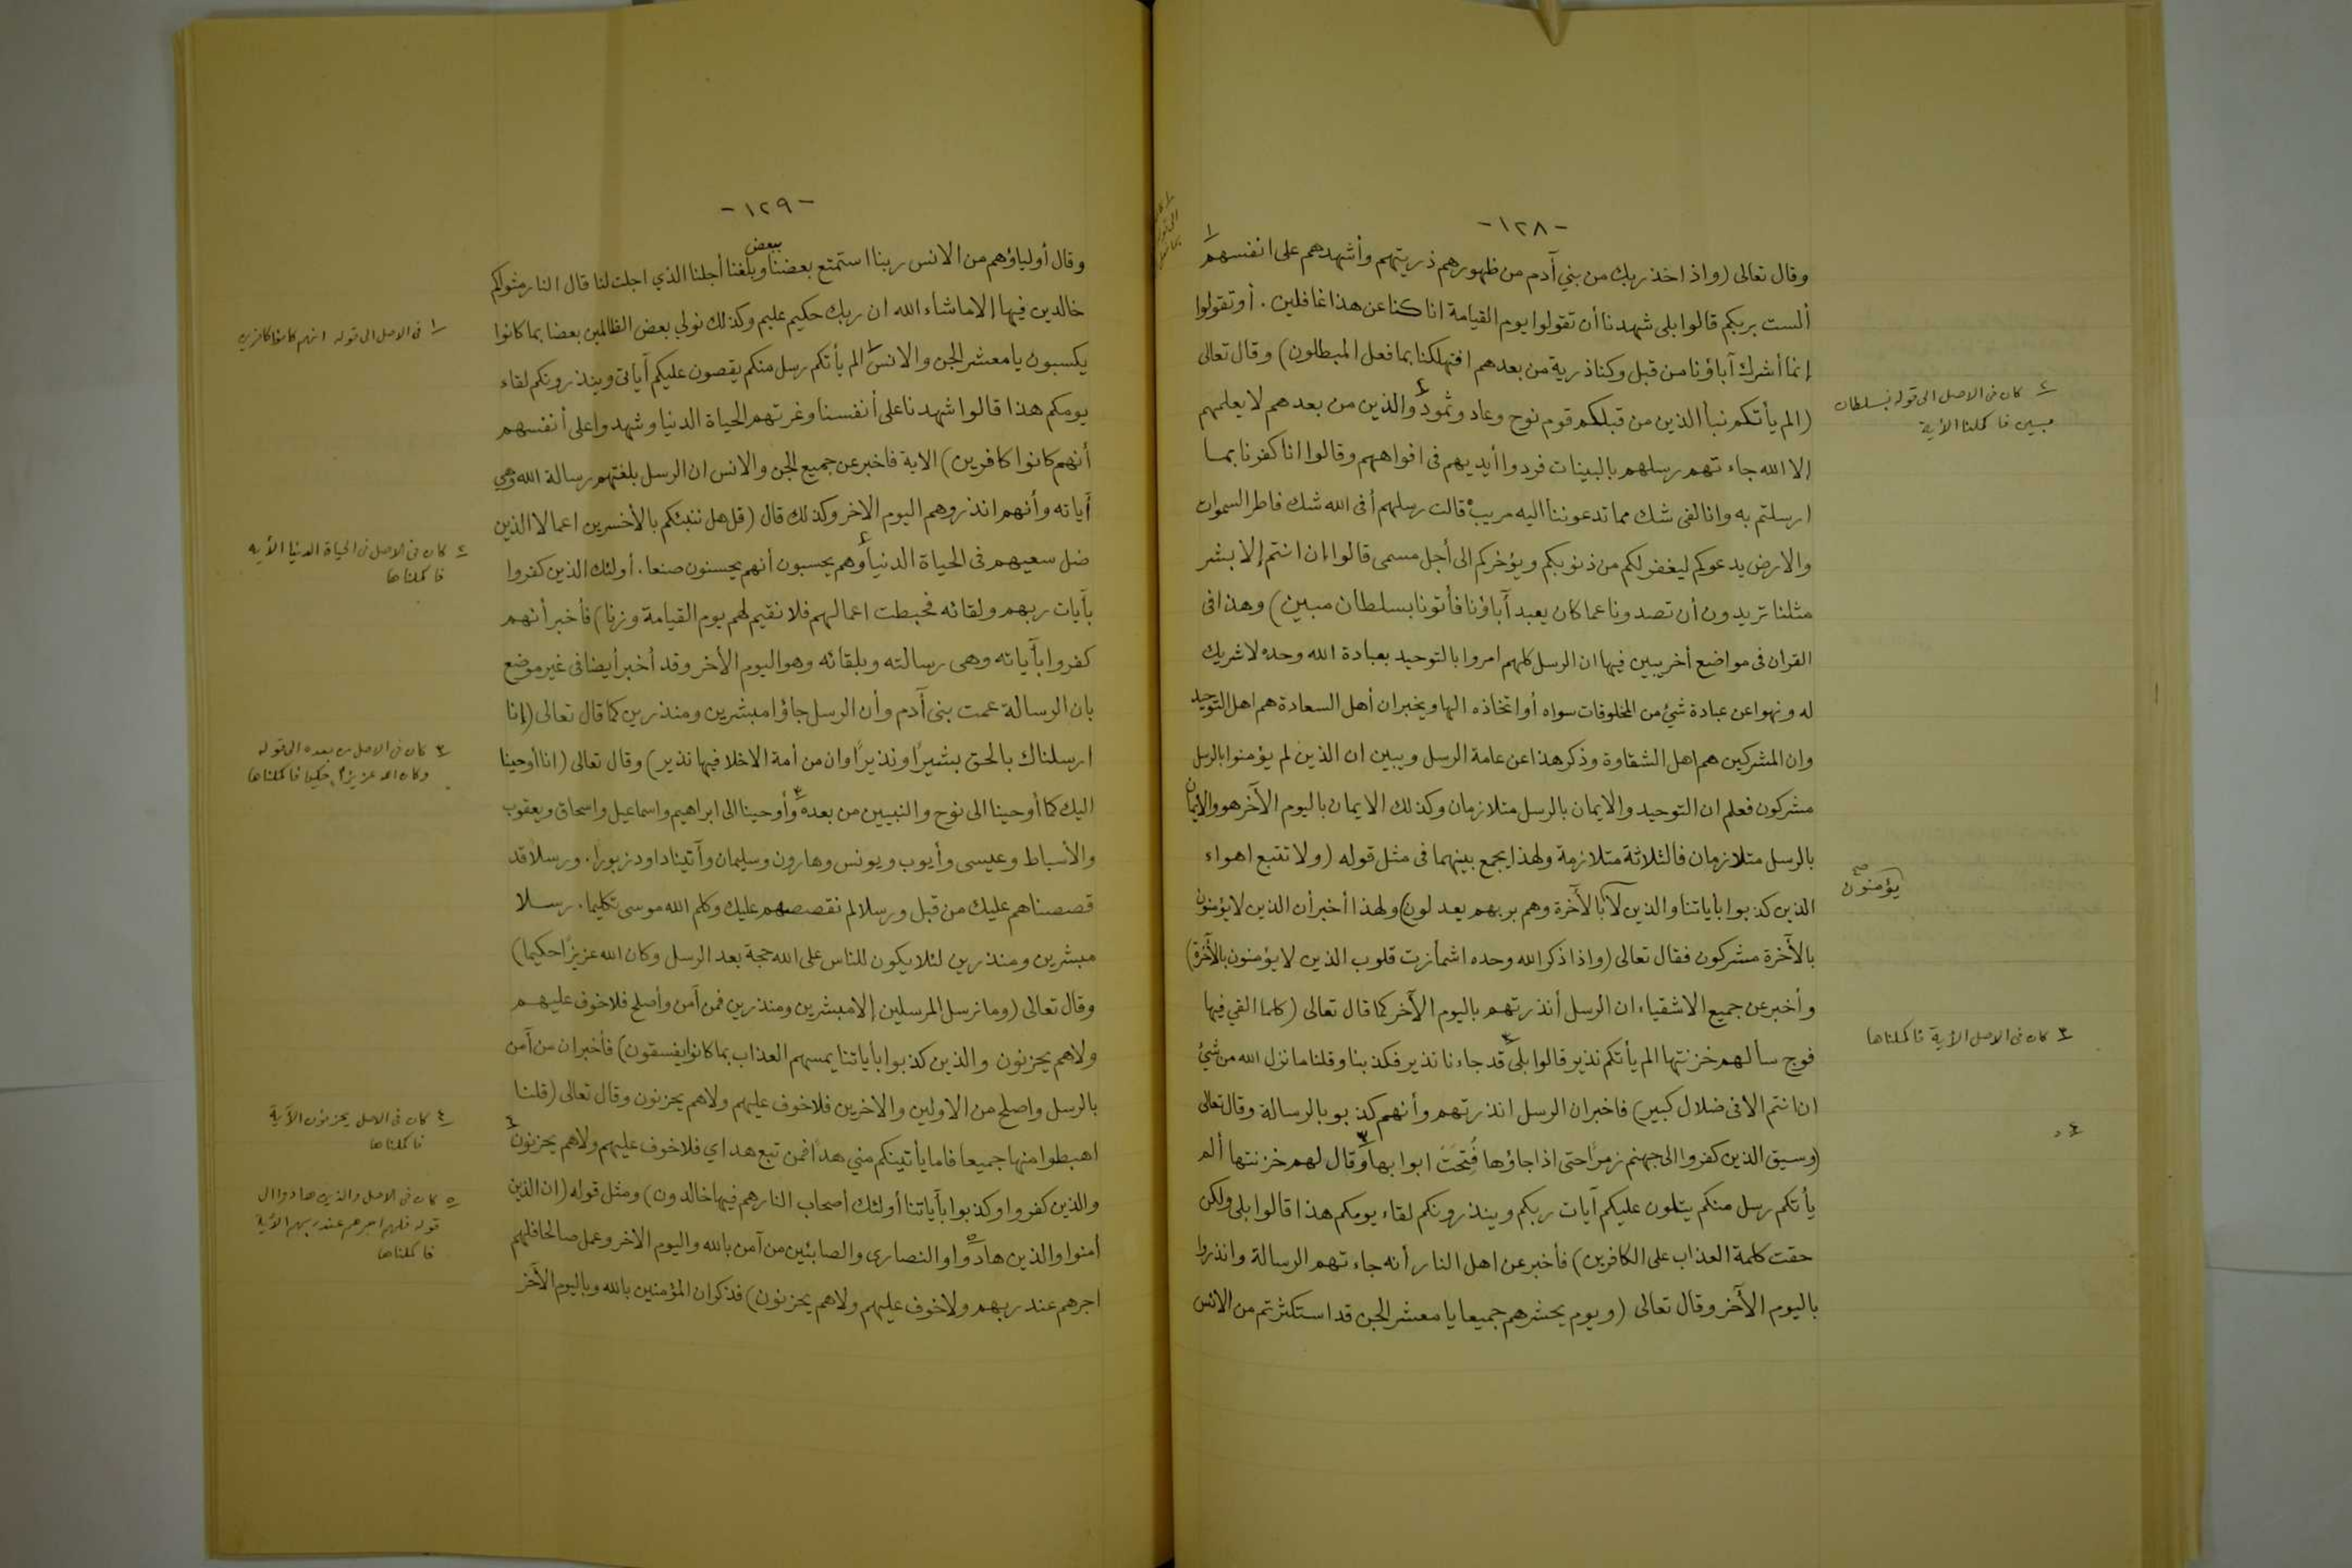 -١٢٨-
وقال تعالى (واذ اخذ ربك من بني آدم من ظهورهم ذريتهم وأشهدهم على انفسهم ١
ألست بربكم قالوا بلى شهدنا أن تقولوا يوم القيامة انا كنا عن هذا غافلين . أو تقولوا
إنما أشرك آباؤنا من قبل وكنا ذرية من بعدهم افتهلكنا بما فعل المبطلون) وقال تعالى
(الم يأتكم نبأ الذين من قبلكم قوم نوح وعاد وثمود ٢ والذين من بعدهم لا يعلمهم
إلا الله جاءتهم رسلهم بالبينات فردوا أيديهم فى افواههم وقالوا انا كفرنا بما
ارسلتم به وانا لفى شك مما تدعوننا اليه مريب قالت رسلهم أفى الله شك فاطر السموات
والارض يدعوكم ليغفر لكم من ذنوبكم ويؤخركم الى أجل مسمى قالوا إن انتم إلا بشر
مثلنا تريدون أن تصدونا عما كان يعبد آباؤنا فأتونا بسلطان مبين) وهذا فى
القران فى مواضع أخر يبين فيها ان الرسل كلهم امروا بالتوحيد بعبادة الله وحده لا شريك
له ونهوا عن عبادة شئ من المخلوقات سواه أو اتخاذه الها ويخبر ان أهل السعادة هم اهل التوحيد
وان المشركين هم اهل الشقاوة وذكر هذا عن عامة الرسل ويبين ان الذين لم يؤمنوا بالرسل
مشركون فعلم ان التوحيد والايمان بالرسل متلازمان وكذلك الايمان باليوم الآخر هو والايمان
بالرسل متلازمان فالثلاثة متلازمة ولهذا يجمع بينهما فى مثل قوله (ولا تتبع اهواء
الذين كذبوا بأياتنا والذين لا بالآخرة وهم بربهم يعدلون) ولهذا أخبر أن الذين لا يؤمنون
بالآخرة مشركون فقال تعالى (واذا ذكر الله وحده اشمأزت قلوب الذين لا يؤمنون بالآخرة)
وأخبر عن جميع الاشقياء ان الرسل أنذرتهم باليوم الآخر كما قال تعالى (كلما القي فيها
فوج سألهم خزنتها الم يأتكم نذير قالوا بلى ٣ قد جاءنا نذير فكذبنا وقلنا ما نزل الله من شئ
ان انتم الا فى ضلال كبير) فاخبر ان الرسل انذرتهم وأنهم كذبو بالرسالة وقال تعالى
(وسيق الذين كفروا الى جهنم زمرًا حتى اذا جاؤها فُتِحَتْ ابوابها ٣ وقال لهم خزنتها ألم
يأتكم رسل منكم يتلون عليكم آيات ربكم وينذرونكم لقاء يومكم هذا قالوا بلى ولكن
حقت كلمة العذاب على الكافرين) فأخبر عن اهل النار أنه جاءتهم الرسالة وانذروا
باليوم الآخر وقال تعالى (ويوم يحشرهم جميعا يا معشر الجن قد استكثرتم من الانس
٢ كان فى الاصل الى قوله بسلطان
مبين فاكملنا الآية
يؤمنون صح
٣ كان فى الاصل الأية فاكملناها
٤ "
-١٢٩-
ببعض
وقال أولياؤهم من الانس ربنا استمتع بعضنا وبلغنا أجلنا الذي اجلت لنا قال النار مثواكم
خالدين فيها إلا ما شاء الله ان ربك حكيم عليم وكذلك نولي بعض الظالمين بعضا بما كانوا
يكسبون يا معشر الجن والانس ١ الم يأتكم رسل منكم يقصون عليكم آياتى وينذرونكم لقاء
يومكم هذا قالوا شهدنا على أنفسنا وغرتهم الحياة الدنيا وشهدوا على أنفسهم
أنهم كانوا كافرين) الاية فاخبر عن جميع الجن والانس ان الرسل بلغتهم رسالة الله وهي
آياته وأنهم انذروهم اليوم الاخر وكذلك قال (قل هل ننبئكم بالأخسرين اعمالا الذين
ضل سعيهم فى الحياة الدنيا ٢ وهم يحسبون أنهم يحسنون صنعا . أولئك الذين كفروا
بآيات ربهم ولقائه فحبطت اعمالهم فلا نقيم لهم يوم القيامة وزنا) فأخبر أنهم
كفروا بآياته وهى رسالته وبلقائه وهو اليوم الأخر وقد أخبر أيضا فى غير موضع
بان الرسالة عمت بنى آدم وأن الرسل جاؤا مبشرين ومنذرين كما قال تعالى (إنا
ارسلناك بالحق بشيرًا ونذيرًا وان من أمة الا خلا فيها نذير) وقال تعالى (انا أوحينا
اليك كما أوحينا الى نوح والنبيين من بعده ٣ وأوحينا الى ابراهيم واسماعيل واسحاق ويعقوب
والأسباط وعيسى وأيوب ويونس وهارون وسليمان وآتينا داود زبورا. ورسلا قد
قصصناهم عليك من قبل ورسلا لم نقصصهم عليك وكلم الله موسى تكليما. رسلا
مبشرين ومنذرين لئلا يكون للناس على الله حجة بعد الرسل وكان الله عزيزًا حكيما)
وقال تعالى (وما نرسل المرسلين إلا مبشرين ومنذرين فمن آمن وأصلح فلا خوف عليهم
ولاهم يحزنون والذين كذبوا بأياتنا يمسهم العذاب بما كانوا يفسقون) فأخبر ان من آمن
بالرسل واصلح من الاولين والاخرين فلا خوف عليهم ولاهم يحزنون وقال تعالى (قلنا
اهبطوا منها جميعا فاما يأتينكم مني هدًا فمن تبع هداي فلا خوف عليهم ولاهم يحزنون ٤
والذين كفروا وكذبوا بآياتنا أولئك أصحاب النار هم فيها خالدون) ومثل قوله (ان الذين
أمنوا والذين هادوا ٥ والنصارى والصابئين من آمن بالله واليوم الاخر وعمل صالحا فلهم
اجرهم عند ربهم ولا خوف عليهم ولاهم يحزنون) فذكر ان المؤمنين بالله وباليوم الآخر
١ فى الاصل الى قوله انهم كانوا كافرين
٢ كان فى الاصل فى الحياة الدنيا الأية
فاكملناها
٣ كان فى الاصل من بعده الى قوله
وكان الله عزيزا حكيما فاكملناها
٤ كان فى الاصل يحزنون الآية
فاكملناها
٥ كان فى الاصل والذين هادوا الى
قوله فلهم اجرهم عند ربهم الأية
فاكملناها